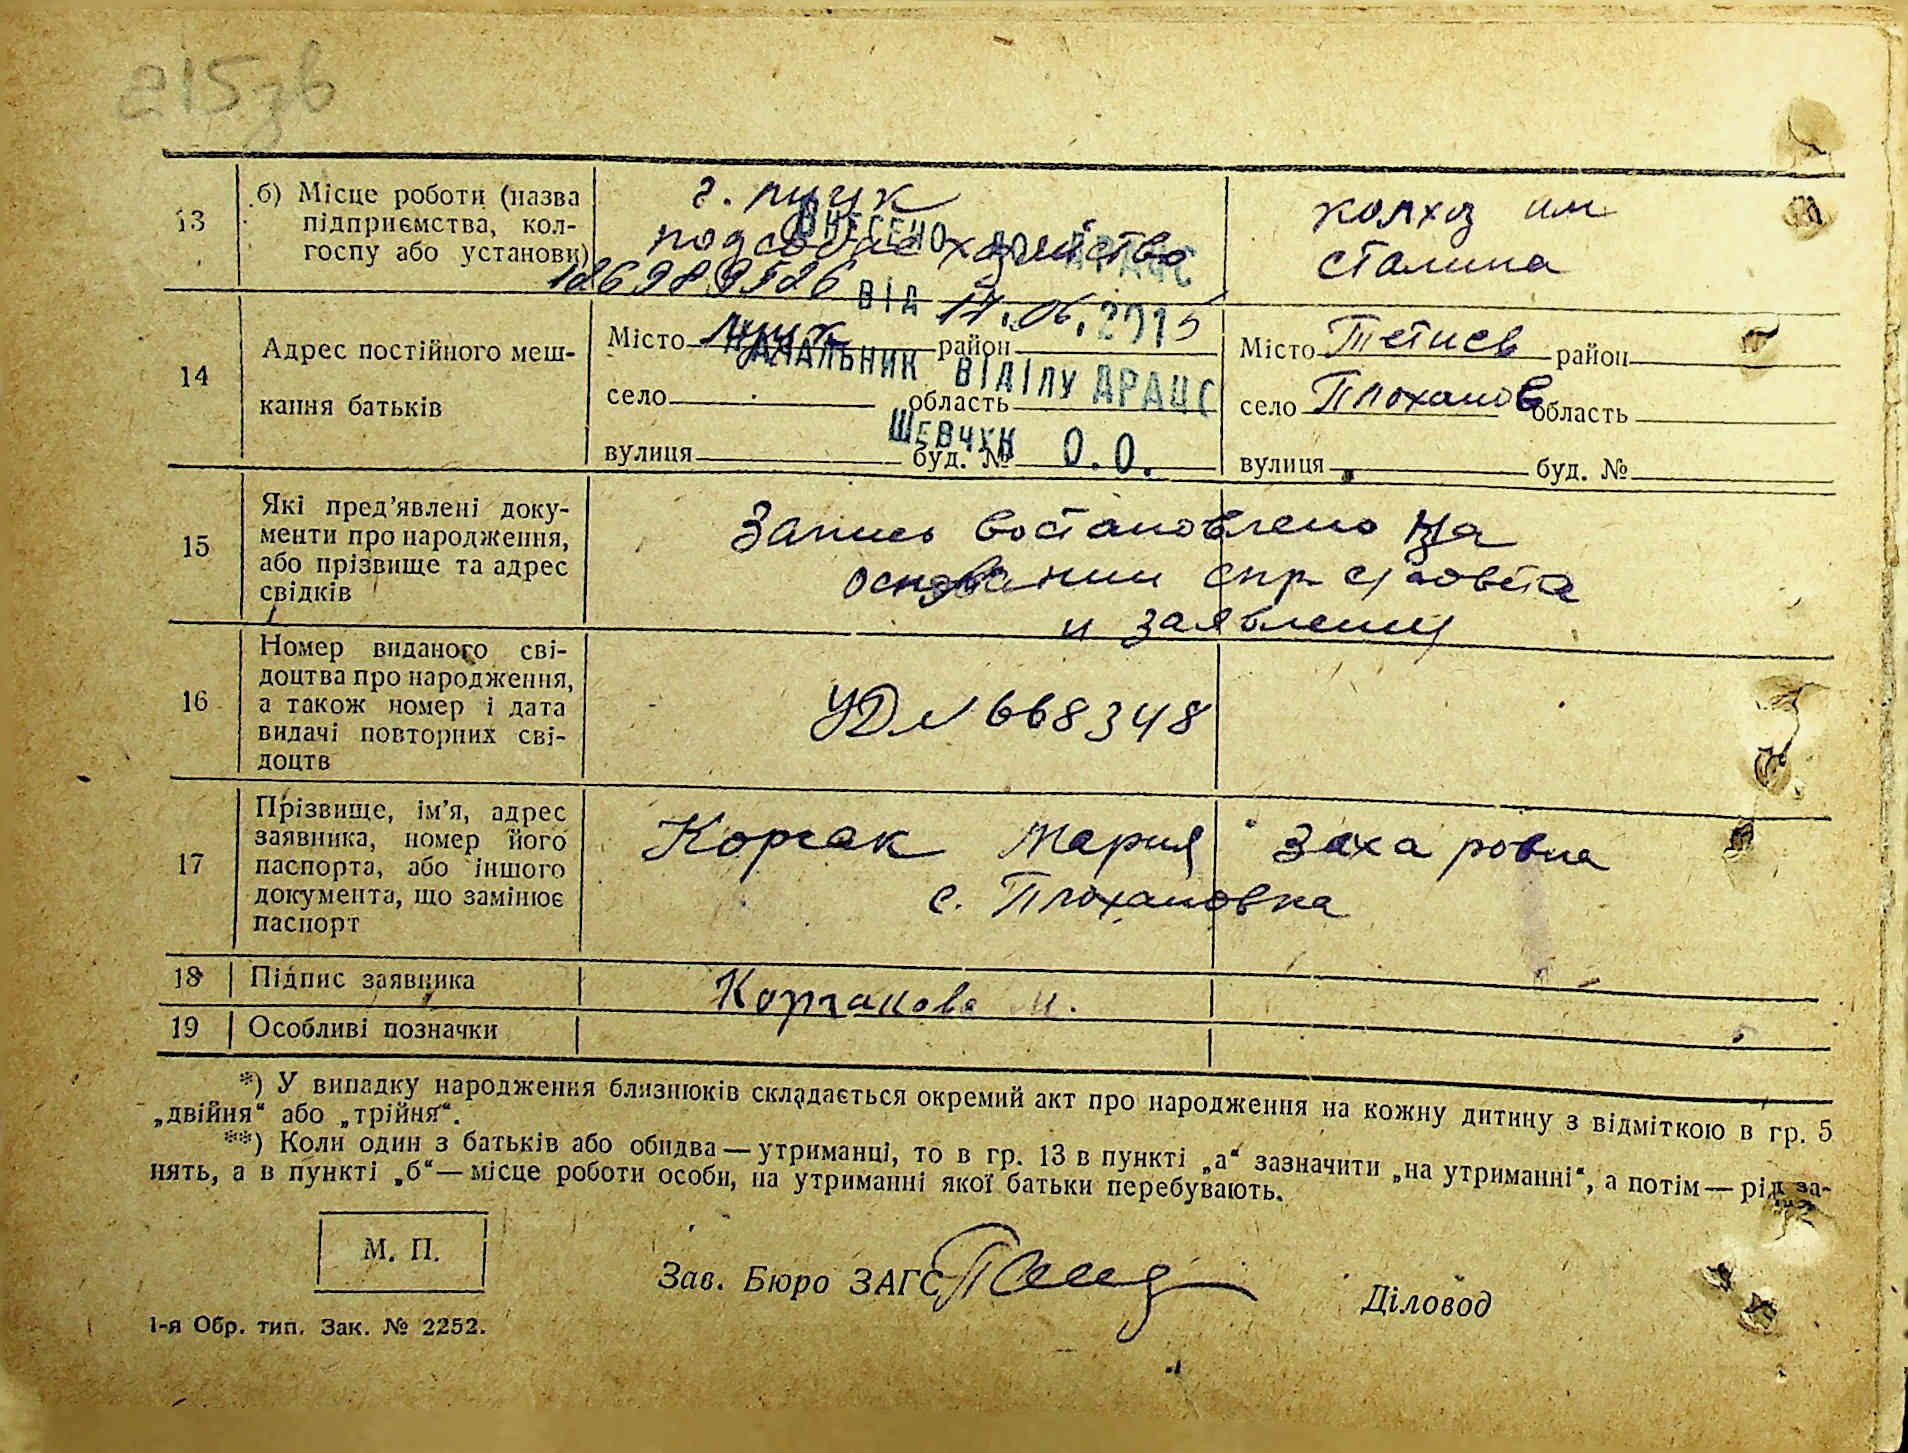 215зв
13
б) Місце роботи (назва
підприємства, кол-
госпу або установи)
г. Луцк
подсобное хозяйство
1869899586
колхоз им
Сталина
ВНЕСЕНО ДО ДРАЦС
ВІД 17.06.2015
НАЧАЛЬНИК ВІДІЛУ ДРАЦС
ШЕВЧУК О.О.
14
Адрес постійного меш-
кання батьків
Місто Луцк район
село область
вулиця буд. №
Місто Тетиев район
село Плоханов область
вулиця буд. №
15
Які пред'явлені доку-
менти про народження,
або прізвище та адрес
свідків
Запись востановлено на
основании спр с/совета
и заявлении
16
Номер виданого сві-
доцтва про народження,
а також номер і дата
видачі повторних сві-
доцтв
УД № 668348
17
Прізвище, ім'я, адрес
заявника, номер його
паспорта, або іншого
документа, що замінює
паспорт
Коргак Мария Захаровна
с. Плохановка
18
Підпис заявника
М.
19
Особливі позначки
*) У випадку народження близнюків складається окремий акт про народження на кожну дитину з відміткою в гр. 5
„двійня“ або „трійня“.
**) Коли один з батьків або обидва — утриманці, то в гр. 13 в пункті „а“ зазначити „на утриманні“, а потім — рід за-
нять, а в пункті „б“ — місце роботи особи, на утриманні якої батьки перебувають.
М. П.
Зав. Бюро ЗАГС
Діловод
1-я Обр. тип. Зак. № 2252.